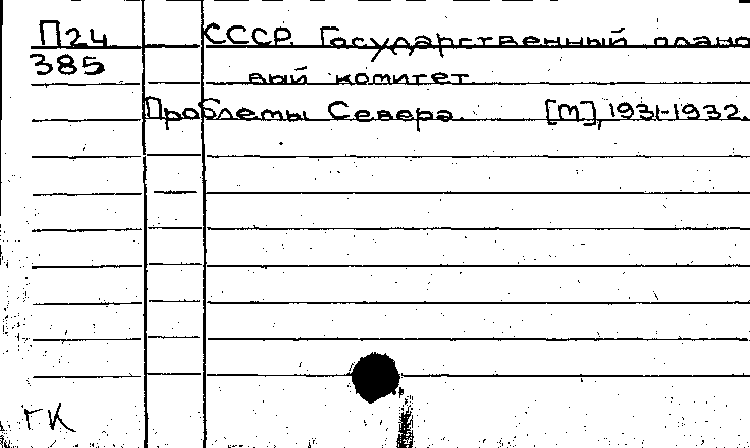 П24 СССР. Государственный плано
385 вый комитет.
Проблемы Севера. [М], 1931-1932.
ГК